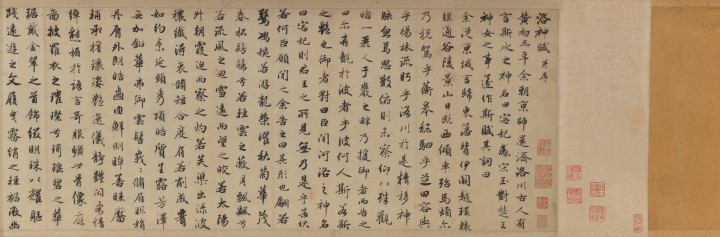 洛神賦 并序
黃初三年余朝京師還濟洛川古人有
言斯水之神名曰宓妃感宋玉對楚王
神女之事遂作斯賦其詞曰
余從京域言歸東藩背伊闕越轘轅
經通谷陵景山日既西傾車殆馬煩爾
乃稅駕乎蘅皋秣駟乎芝田容與
乎楊林流眄乎洛川於是精移神
駭忽焉思散俯則未察仰以殊觀
睹一麗人于巖之畔乃援御者而告之
曰爾有覿於彼者乎彼何人斯若斯
之艷也御者對曰臣聞河洛之神名
曰宓妃則君王之所見無乃是乎其狀
若何臣願聞之余告之曰其形也翩若
驚鴻婉若游龍榮曜秋菊華茂
春松髣髴兮若輕雲之蔽月飄飄兮
若流風之迴雪遠而望之皎若太陽
升朝霞迫而察之灼若芙蕖出淥波
穠纖得衷脩短合度肩若削成腰
如約素延頸秀項皓質呈露芳澤
無加鉛華弗御雲髻峨峨脩眉聯娟
丹脣外朗皓齒內鮮明眸善睞靨
輔承權瓌姿艷逸儀靜體閑柔情
綽態媚於語言奇服曠世骨像應
圖披羅衣之璀璨兮珥瑤碧之華
琚戴金翠之首飾綴明珠以耀軀
踐遠遊之文履曳霧綃之輕裾微幽